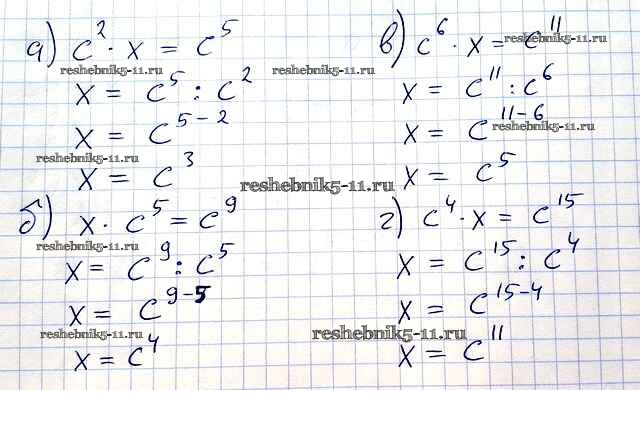 а) c² · x = c⁵
reshebnik5-11.ru
x = c⁵ : c²
x = c⁵⁻²
reshebnik5-11.ru
x = c³
б) x · c⁵ = c⁹
reshebnik5-11.ru
x = c⁹ : c⁵
x = c⁹⁻⁵
reshebnik5-11.ru
x = c⁴
reshebnik5-11.ru
reshebnik5-11.ru
в) c⁶ · x = c¹¹
reshebnik5-11.ru
x = c¹¹ : c⁶
x = c¹¹⁻⁶
reshebnik5-11.ru
x = c⁵
г) c⁴ · x = c¹⁵
x = c¹⁵ : c⁴
x = c¹⁵⁻⁴
reshebnik5-11.ru
x = c¹¹